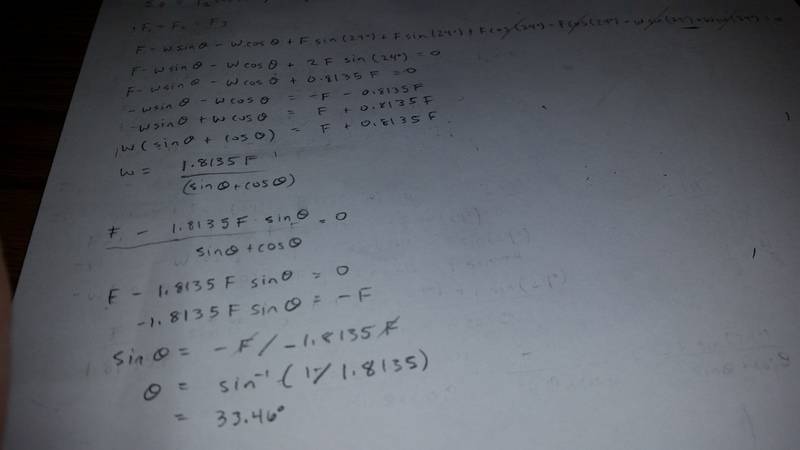 F₁ = F₂ = F₃
F - wsinθ - wcosθ + F sin(24°) + F sin(24°) + F cos(24°) - F cos(24°)
F - wsinθ - wcosθ + 2F sin(24°) = 0
F - wsinθ - wcosθ + 0.8135F = 0
-wsinθ - wcosθ = -F - 0.8135F
-wsinθ + wcosθ = F + 0.8135F
w(sinθ + cosθ) = F + 0.8135F
w = 1.8135F / (sinθ+cosθ)
F - 1.8135F sinθ / sinθ+cosθ = 0
F - 1.8135F sinθ = 0
-1.8135F sinθ = -F
sinθ = -F / -1.8135F
θ = sin⁻¹(1/1.8135)
= 33.46°